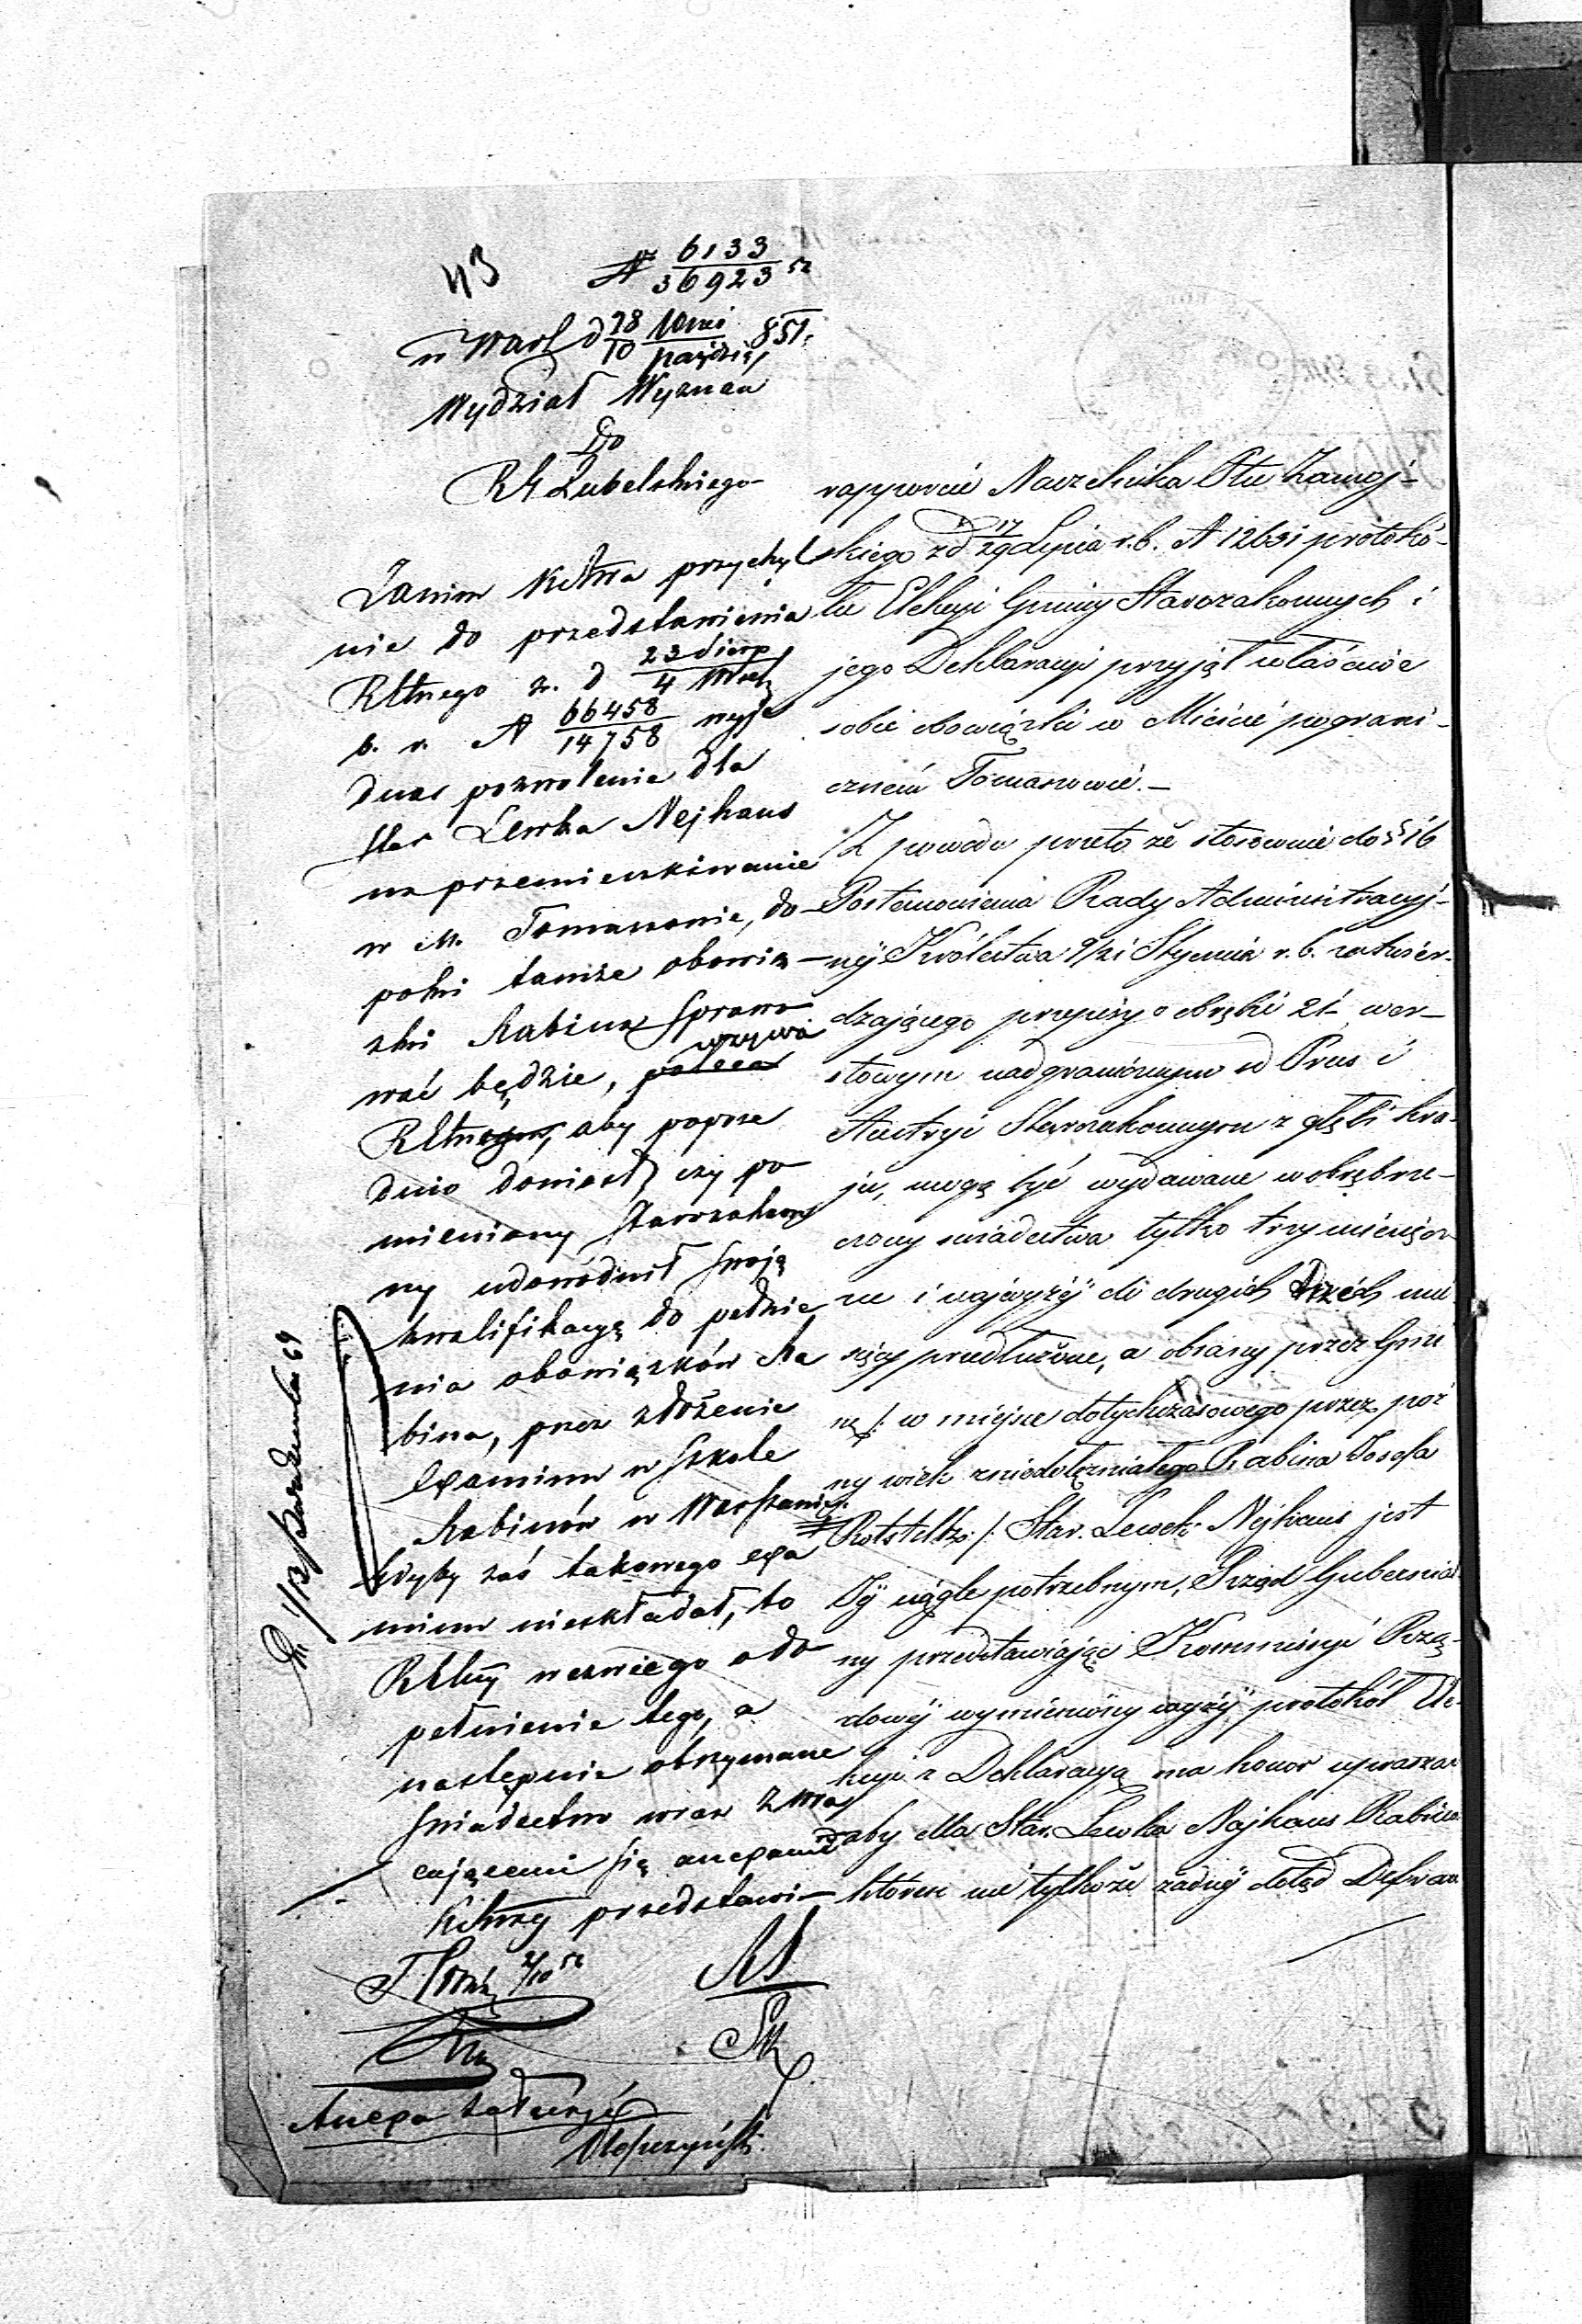 43 № 6133/36923 52
w Wars. d 28/10 Wrześ./paździer. 851.
Wydział Wyznań
Do
RG Lubelskiego
Zanim Kttna przychyl
nie do przedstawienia
RGtnego z. d 23 Sierp/4 Wrześ
b. r. № 66458/14758 wyje
dnać pozwolenie dla
Star Lewka Nejhaus
na przemieszkiwanie
w m. Tomaszowie, do-
póki tamże obowią-
zki Rabina sprawo
wać będzie, poleca wzywa
RGtnego, aby poprze
dnio doniosł, czy po
mieniony Starozakon
ny udowodnił swoją
kwalifikacyą do pełnie
nia obowiązków Ra
bina, przez złożenie
examinu w Szkole
Rabinów w Warszawie.
Gdyby zaś takowego exa
minu nieskładał, to
RGtny wezwie go o do
pełnienie tego, a
następnie otrzymane
świadectwo wraz z wra
cającemi się anexami
Kttnzy przedstawi
Anexa załączyć
rapporcie Naczelnika Ptu Zamoj-
skiego z d 17/29 Lipca r. b. № 12631 protokó-
łu Elekcyi Gminy Starozakonnych i
jego Deklaracyi przyjął właściwe
sobie obowiązki w Mieście pograni-
cznem Tomaszowie.-
Z powodu przeto że stosownie do § 16
Postanowienia Rady Administracyj-
nej Królestwa 9/21 Stycznia r. b. zatwier-
dzającego przepisy o obrębie 21 wer-
stowym nadgranicznym od Prus i
Austryi Starozakonnym z głębi kra-
ju, mogą być wydawane w obręb rze-
czony świadectwa tylko trzymiesięcz-
ne i najwyżej do drugich trzech mie
sięcy przedłużone, a obrany przez Gmi
nę /: w miejsce dotychczasowego przez póź
ny wiek zniedołężniałego Rabina Josefa
:/ Star. Lewek Nejhaus jest
Jej nagle potrzebnym, Rząd Gubernial
ny przedstawiając Kommissyi Rzą-
dowej wymieniony wyżej protokół Ele-
kcyi z Deklaracyą ma honor upraszać
aby dla Star. Lewka Najhaus Rabina
któren nie tylko że żadnej dotąd